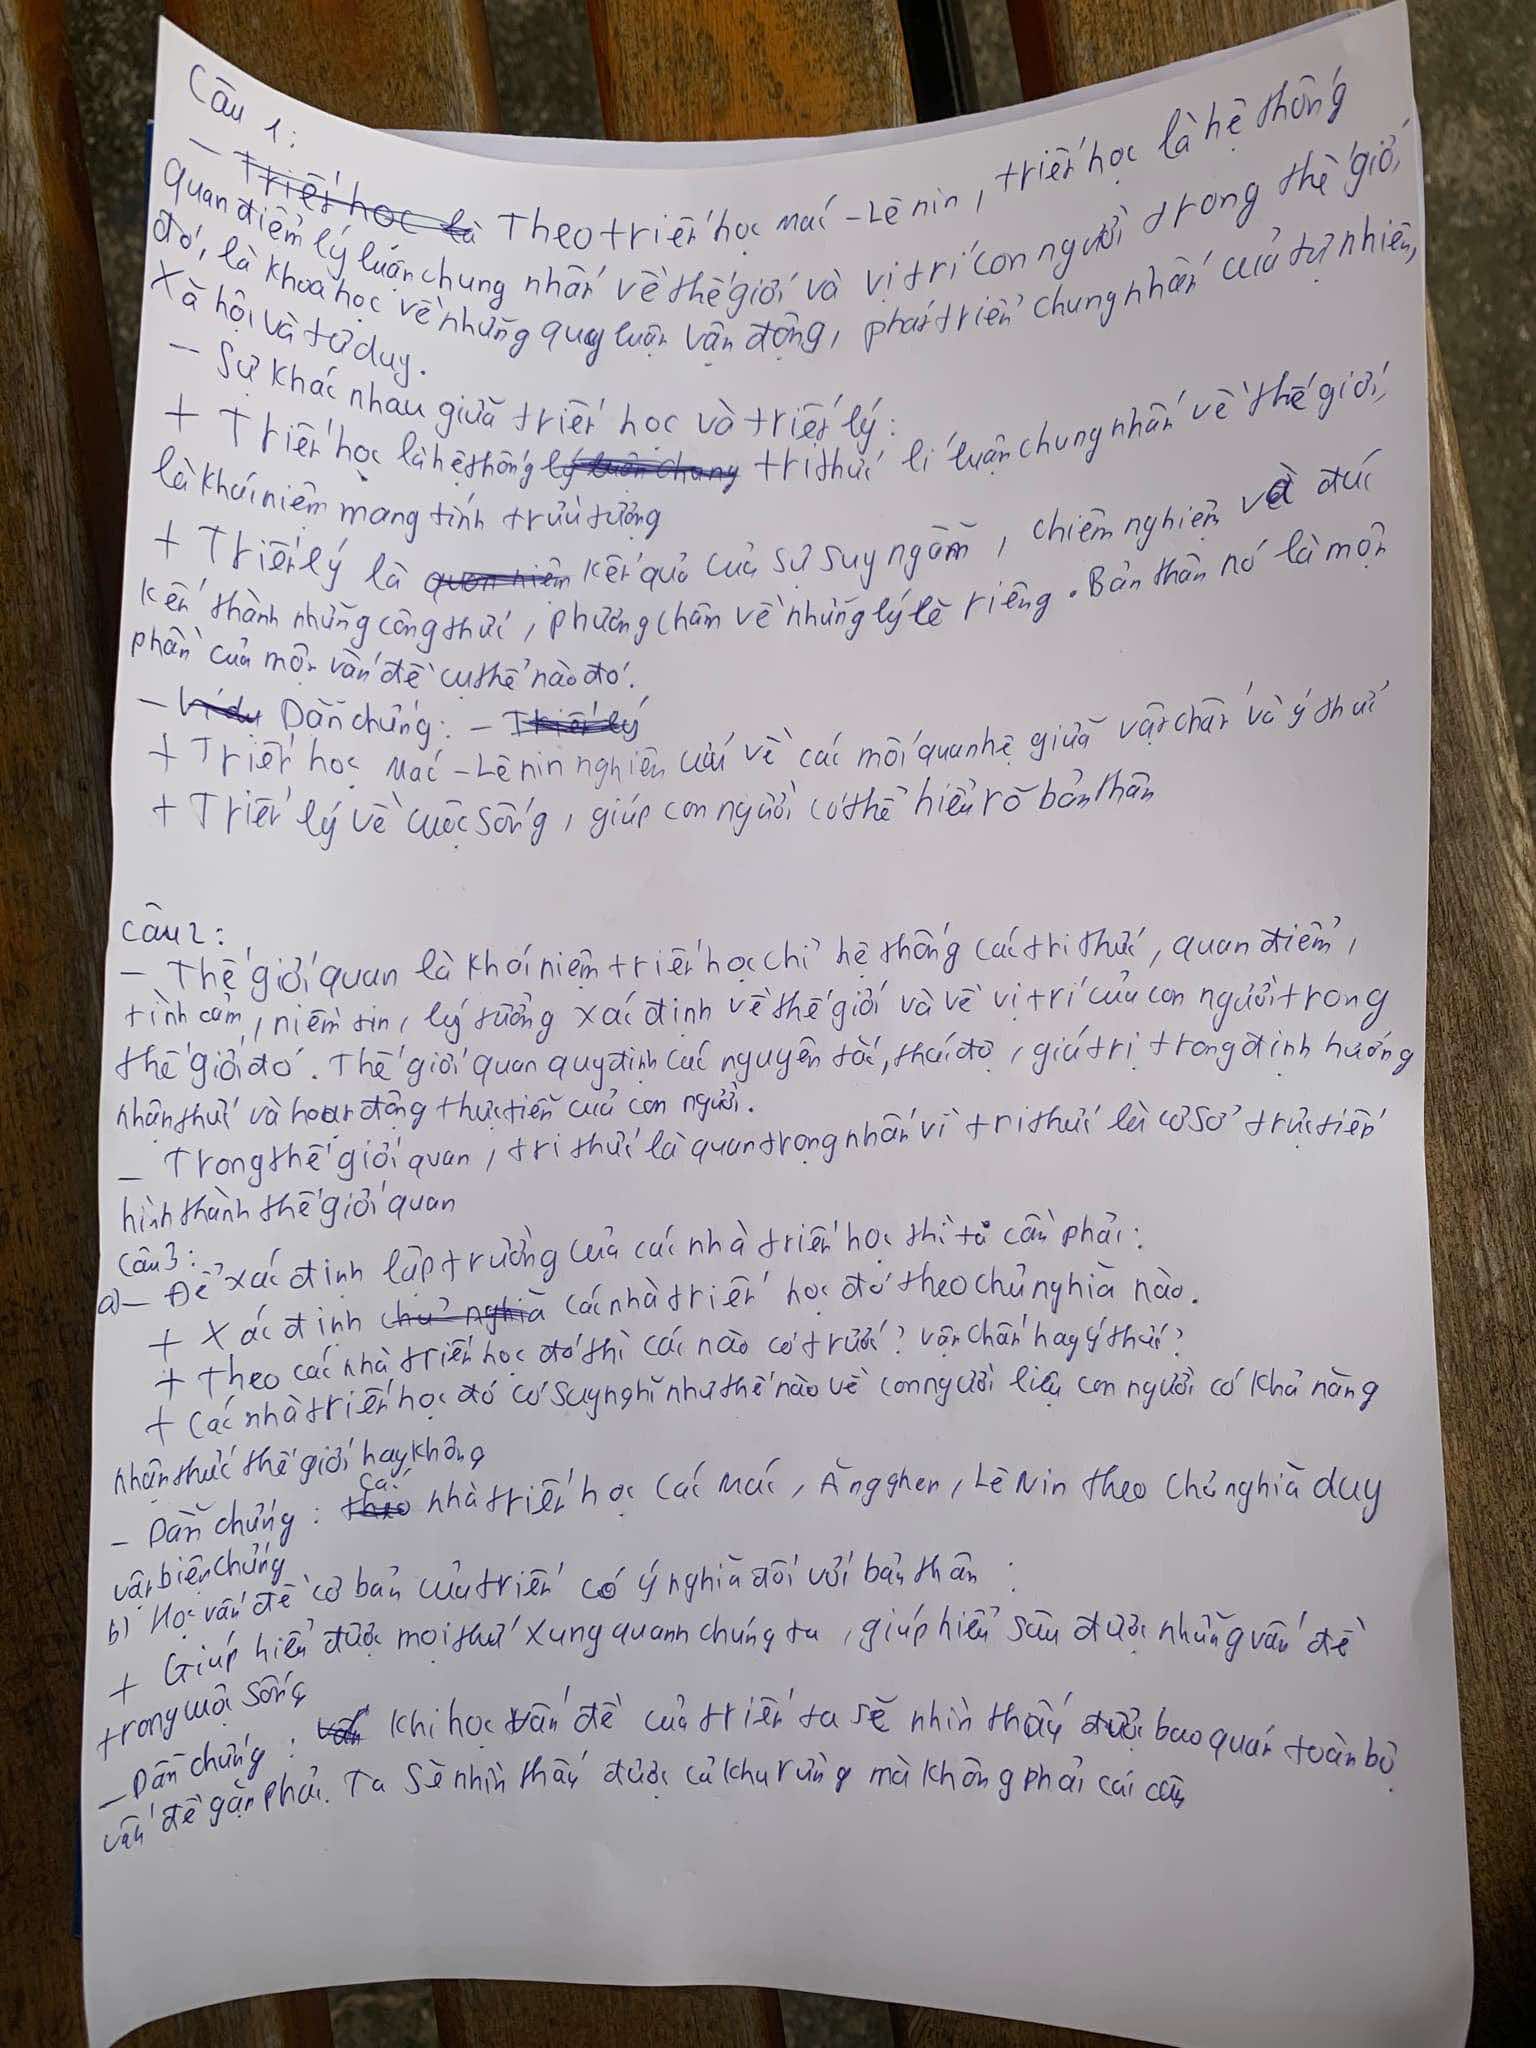 Câu 1:
- Triết học là Theo triết học Mác - Lê nin, triết học là hệ thống
quan điểm lý luận chung nhất về thế giới và vị trí con người trong thế giới
đó, là khoa học về những quy luật vận động, phát triển chung nhất của tự nhiên,
xã hội và tư duy.
- Sự khác nhau giữa triết học và triết lý:
+ Triết học là hệ thống lý luận chung tri thức lí luận chung nhất về thế giới,
là khái niệm mang tính trừu tượng
+ Triết lý là quan niệm kết quả của sự suy ngẫm, chiêm nghiệm và đúc
kết thành những công thức, phương châm về những lý lẽ riêng. Bản thân nó là một
phần của một vấn đề cụ thể nào đó.
- Ví dụ Dẫn chứng: - Triết lý
+ Triết học Mác - Lê nin nghiên cứu về các mối quan hệ giữa vật chất và ý thức
+ Triết lý về cuộc sống, giúp con người có thể hiểu rõ bản thân
Câu 2:
- Thế giới quan là khái niệm triết học chỉ hệ thống các tri thức, quan điểm,
tình cảm, niềm tin, lý tưởng xác định về thế giới và về vị trí của con người trong
thế giới đó. Thế giới quan quy định các nguyên tắc, thái độ, giá trị trong định hướng
nhận thức và hoạt động thực tiễn của con người.
- Trong thế giới quan, tri thức là quan trọng nhất vì tri thức là cơ sở trực tiếp
hình thành thế giới quan
Câu 3:
a) - Để xác định lập trường của các nhà triết học thì ta cần phải:
+ Xác định chủ nghĩa các nhà triết học đó theo chủ nghĩa nào.
+ Theo các nhà triết học đó thì cái nào có trước? vật chất hay ý thức?
+ Các nhà triết học đó có suy nghĩ như thế nào về con người liệu con người có khả năng
nhận thức thế giới hay không
- Dẫn chứng: theo các nhà triết học Các Mác, Ăngghen, Lê Nin theo chủ nghĩa duy
vật biện chứng
b) Học vấn đề cơ bản của triết có ý nghĩa đối với bản thân:
+ Giúp hiểu được mọi thứ xung quanh chúng ta, giúp hiểu sâu được những vấn đề
trong cuộc sống
- Dẫn chứng: vấn Khi học vấn đề của triết ta sẽ nhìn thấy được bao quát toàn bộ
vấn đề gặp phải. Ta sẽ nhìn thấy được cả khu rừng mà không phải cái cây